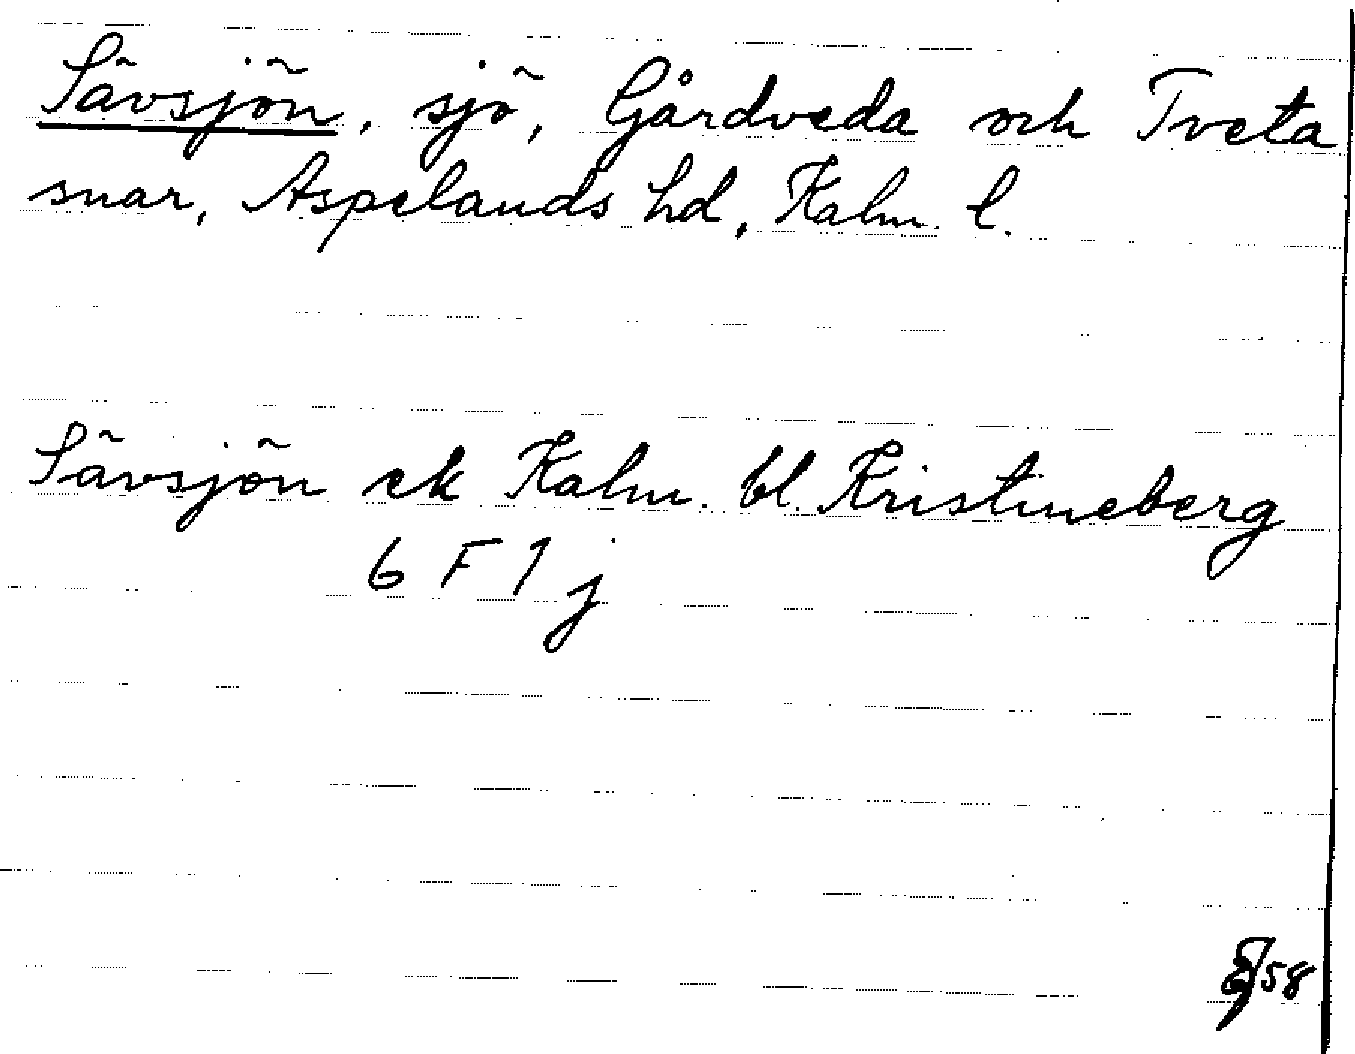 Sävsjön, sjö, Gårdveda och Tveta
snar, Aspelands hd, Kalm. l.
Sävsjön ek Kalm. bl. Kristineberg
6 F 1 j
58